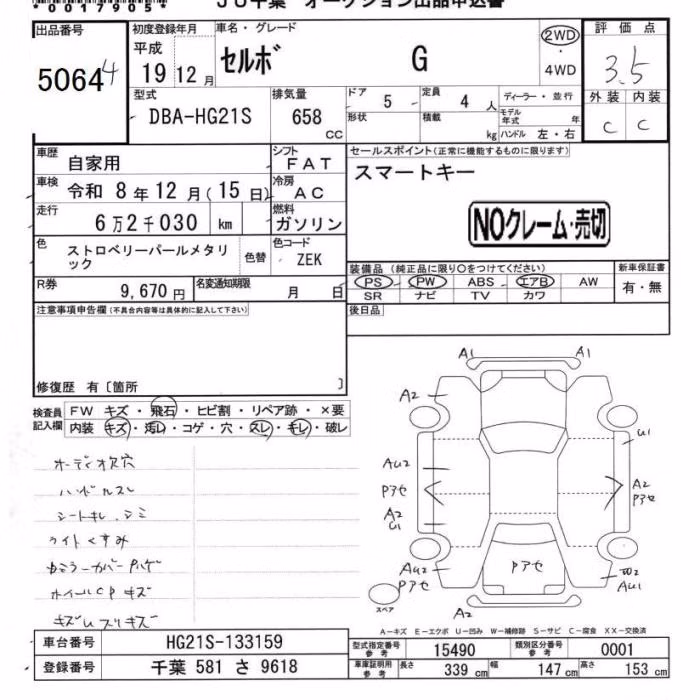 *00179050*
JU千葉 オークション出品申込書
出品番号 初度登録年月 車名・グレード 2WD・4WD 評価点
50644 平成 19年12月 セルボ G 3.5
型式 排気量 ドア 5 定員 4人 ディーラー・並行 外装 内装
DBA-HG21S 658cc 形状 積載 kg モデル年式 年 ハンドル 左・右 C C
車歴 自家用 シフト FAT セールスポイント(正常に機能するものに限ります)
車検 令和 8年12月(15日) 冷房 AC スマートキー
走行 6万2千030 km 燃料 ガソリン NOクレーム・売切
色 ストロベリーパールメタリック 色替 色コード ZEK
装備品(純正品に限り○をつけてください) 新車保証書
R券 9,670円 名変通知期限 月 日 PS PW ABS エアB AW 有・無
SR ナビ TV カワ
注意事項申告欄(不具合内容等は具体的に記入して下さい) 後日品
修復歴 有〔箇所 〕
検査員記入欄 FW キズ・飛石・ヒビ割・リペア跡・×要
内装 キズ・汚レ・コゲ・穴・スレ・キレ・破レ
A1 A1
A2
U1
AU2
Pアセ
A2
Pアセ
A2
U1
オーディオ欠穴
ハンドルスレ
シートキレ、シミ
ライトくすみ
Pアセ
AU2
Pアセ
AU1
ホイールCPキズ
スペア
A2
キズUプリキズ
A－キズ E－エクボ U－凹み W－補修跡 S－サビ C－腐食 XX－交換済
車台番号 HG21S-133159 型式指定番号 参考 15490 類別区分番号 参考 0001
登録番号 千葉 581 さ 9618 車庫証明用 参考 長さ 339cm 幅 147cm 高さ 153cm